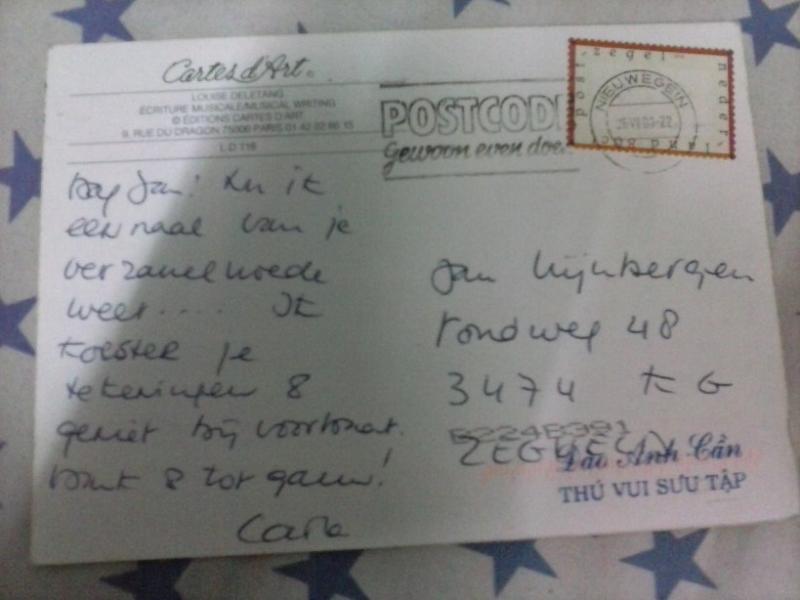 Cartes d'Art ©
LOUISE DELETANG
ÉCRITURE MUSICALE/MUSICAL WRITING
© ÉDITIONS CARTES D'ART
9, RUE DU DRAGON 75006 PARIS 01 42 22 86 15
LD 116
POSTCODE
Gewoon even doe
post zegel neder land 80
NIEUWEGEIN
Dag Jan! Nu ik
eenmaal van je
verzamelwoede
weet.... Ik
koester je
tekeningen &
geniet bij voorbaat.
Dank & tot gauw!
Carla
Jan Wijnbergen
rondweg 48
3474 KG
ZEGVELD
Đào Anh Cần
THÚ VUI SƯU TẬP